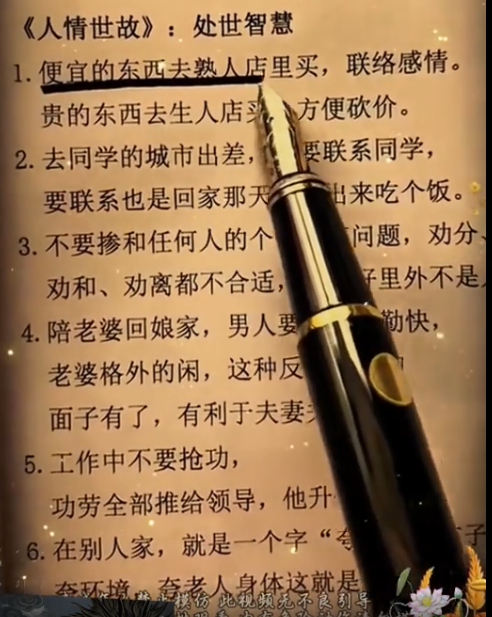 《人情世故》：处世智慧
1.便宜的东西去熟人店里买，联络感情。
贵的东西去生人店买 方便砍价。
2.去同学的城市出差， 要联系同学，
要联系也是回家那天 出来吃个饭。
3.不要掺和任何人的个 问题，劝分、
劝和、劝离都不合适， 好里外不是
4.陪老婆回娘家，男人要 勤快，
老婆格外的闲，这种反
面子有了，有利于夫妻
5.工作中不要抢功，
功劳全部推给领导，他升
6.在别人家，就是一个字“夸 子
夸环境，夸老人身体这就是
模仿 此视频无不良引导